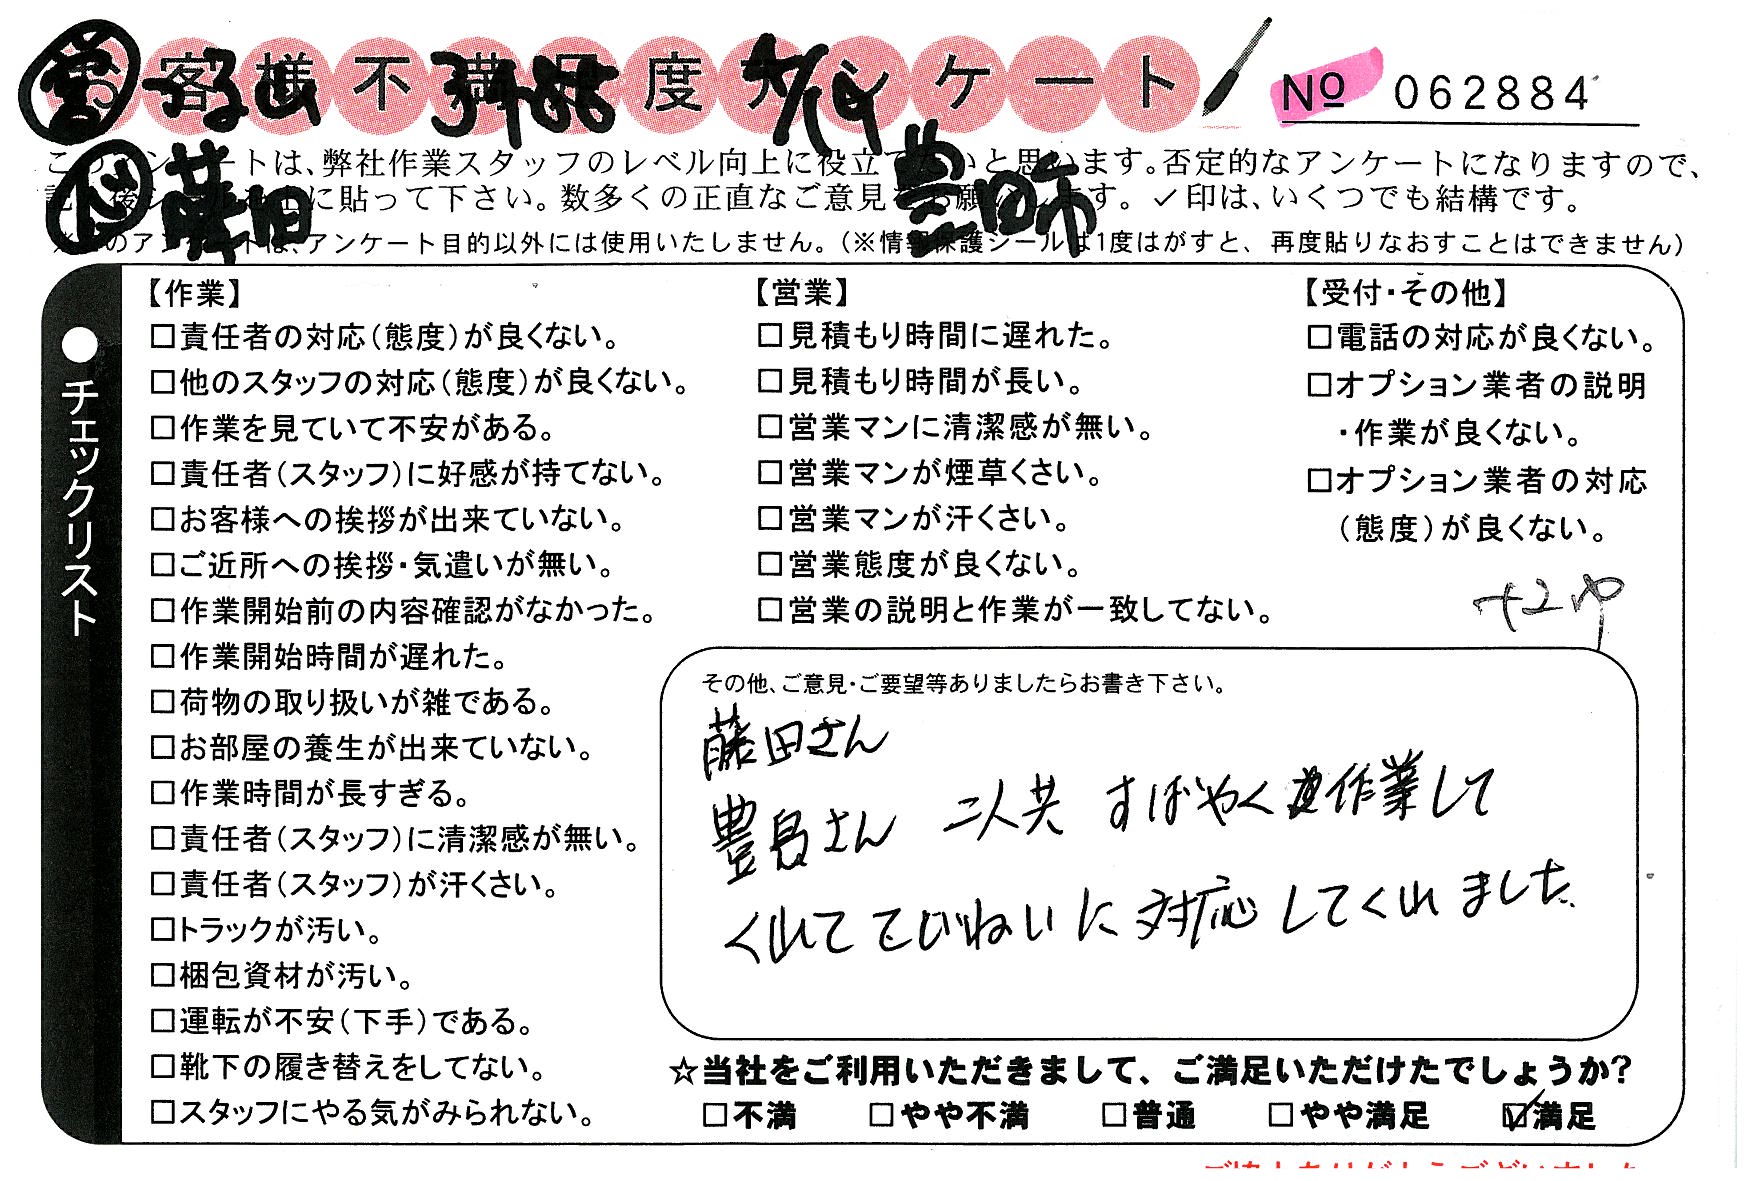 お客様不満足度アンケート
№ 062884
このアンケートは、弊社作業スタッフのレベル向上に役立てたいと思います。否定的なアンケートになりますので、
記入後シールを上に貼って下さい。数多くの正直なご意見をお願いします。✓印は、いくつでも結構です。
藤田
※このアンケートは、アンケート目的以外には使用いたしません。(※情報保護シールは1度はがすと、再度貼りなおすことはできません)
●チェックリスト
【作業】
□責任者の対応(態度)が良くない。
□他のスタッフの対応(態度)が良くない。
□作業を見ていて不安がある。
□責任者(スタッフ)に好感が持てない。
□お客様への挨拶が出来ていない。
□ご近所への挨拶・気遣いが無い。
□作業開始前の内容確認がなかった。
□作業開始時間が遅れた。
□荷物の取り扱いが雑である。
□お部屋の養生が出来ていない。
□作業時間が長すぎる。
□責任者(スタッフ)に清潔感が無い。
□責任者(スタッフ)が汗くさい。
□トラックが汚い。
□梱包資材が汚い。
□運転が不安(下手)である。
□靴下の履き替えをしてない。
□スタッフにやる気がみられない。
【営業】
□見積もり時間に遅れた。
□見積もり時間が長い。
□営業マンに清潔感が無い。
□営業マンが煙草くさい。
□営業マンが汗くさい。
□営業態度が良くない。
□営業の説明と作業が一致してない。
【受付・その他】
□電話の対応が良くない。
□オプション業者の説明
・作業が良くない。
□オプション業者の対応
(態度)が良くない。
その他、ご意見・ご要望等ありましたらお書き下さい。
藤田さん
豊島さん 二人共 すばやく 作業して
くれて ていねいに 対応してくれました。
☆当社をご利用いただきまして、ご満足いただけたでしょうか?
□不満 □やや不満 □普通 □やや満足 ☑満足
ご協力ありがとうございました